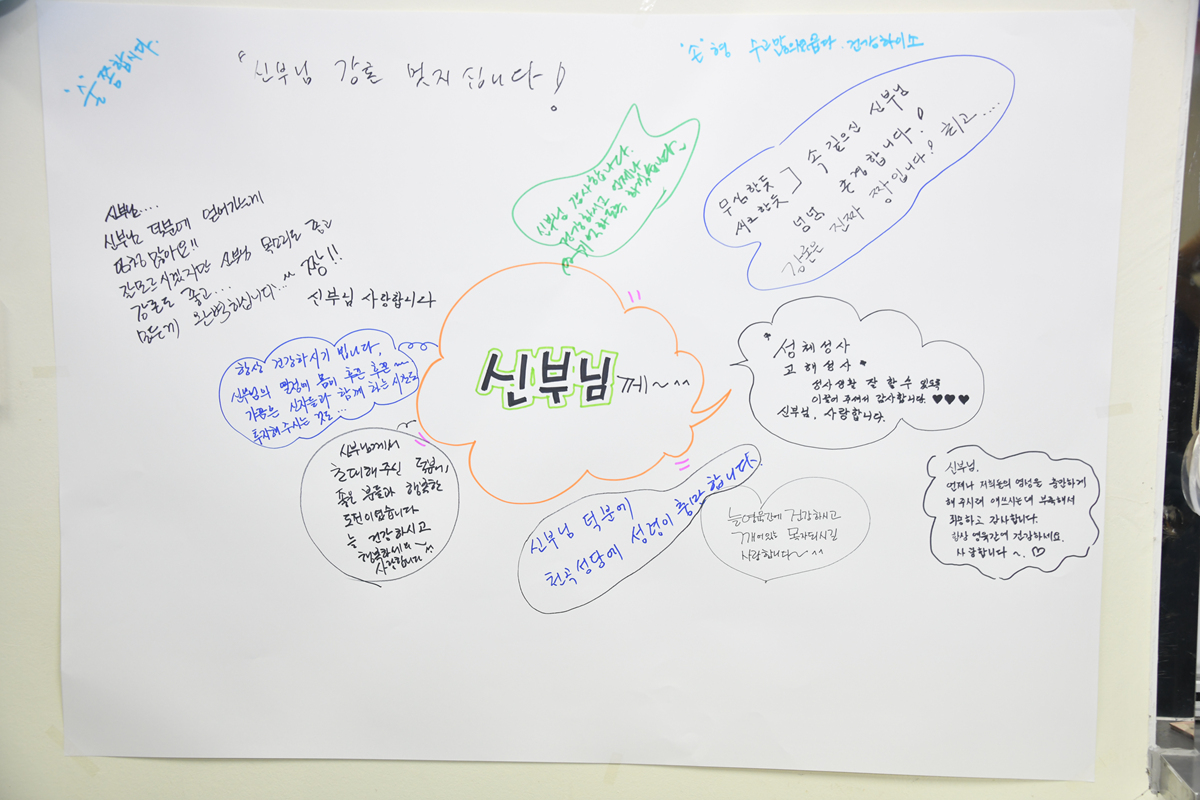 "손"쫑합시다.
"신부님 강론 멋지십니다!
"손"형 수고많의몹다. 건강하이소
신부님 감사합니다.
건강하시고 언제나
기억하도록 하겠습니다
무심한듯
씨크한듯
속 깊으신 신부님
존경합니다!
넝넝
강론은 진짜 짱입니다! 최고....
신부님...
신부님 덕분에 얻어가는게
많아요!!
잘모르시겠지만 신부님 목소리도 좋고
강론도 좋고...
모든게 완벽하십니다...^^ 짱!!
신부님 사랑합니다
항상 건강하시기 빕니다,
신부님의 열정에 몸이 후끈 후끈 ~~
가끔은 신자들과 함께 하는 시간도
투자해 주시는 것도...
신부님께~^^
성체성사
고해성사
성사생활 잘 할 수 있도록
이끌어 주셔서 감사합니다. ♥♥♥
신부님, 사랑합니다.
신부님께서
초대해주신 덕분에,
좋은 분들과 행복한
도전이였습니다
늘 건강하시고
행복하세요~
사랑합니다~^^
신부님 덕분에
천곡성당에 성령이 충만합니다.
늘 영육간에 건강하시고
깨어있는 목자되시길
사랑합니다~^^
신부님.
언제나 저희들의 영성을 충만하게
해 주시려 애쓰시는데 부족해서
죄송하고 감사합니다.
항상 영육간에 건강하세요.
사랑합니다~. ♡